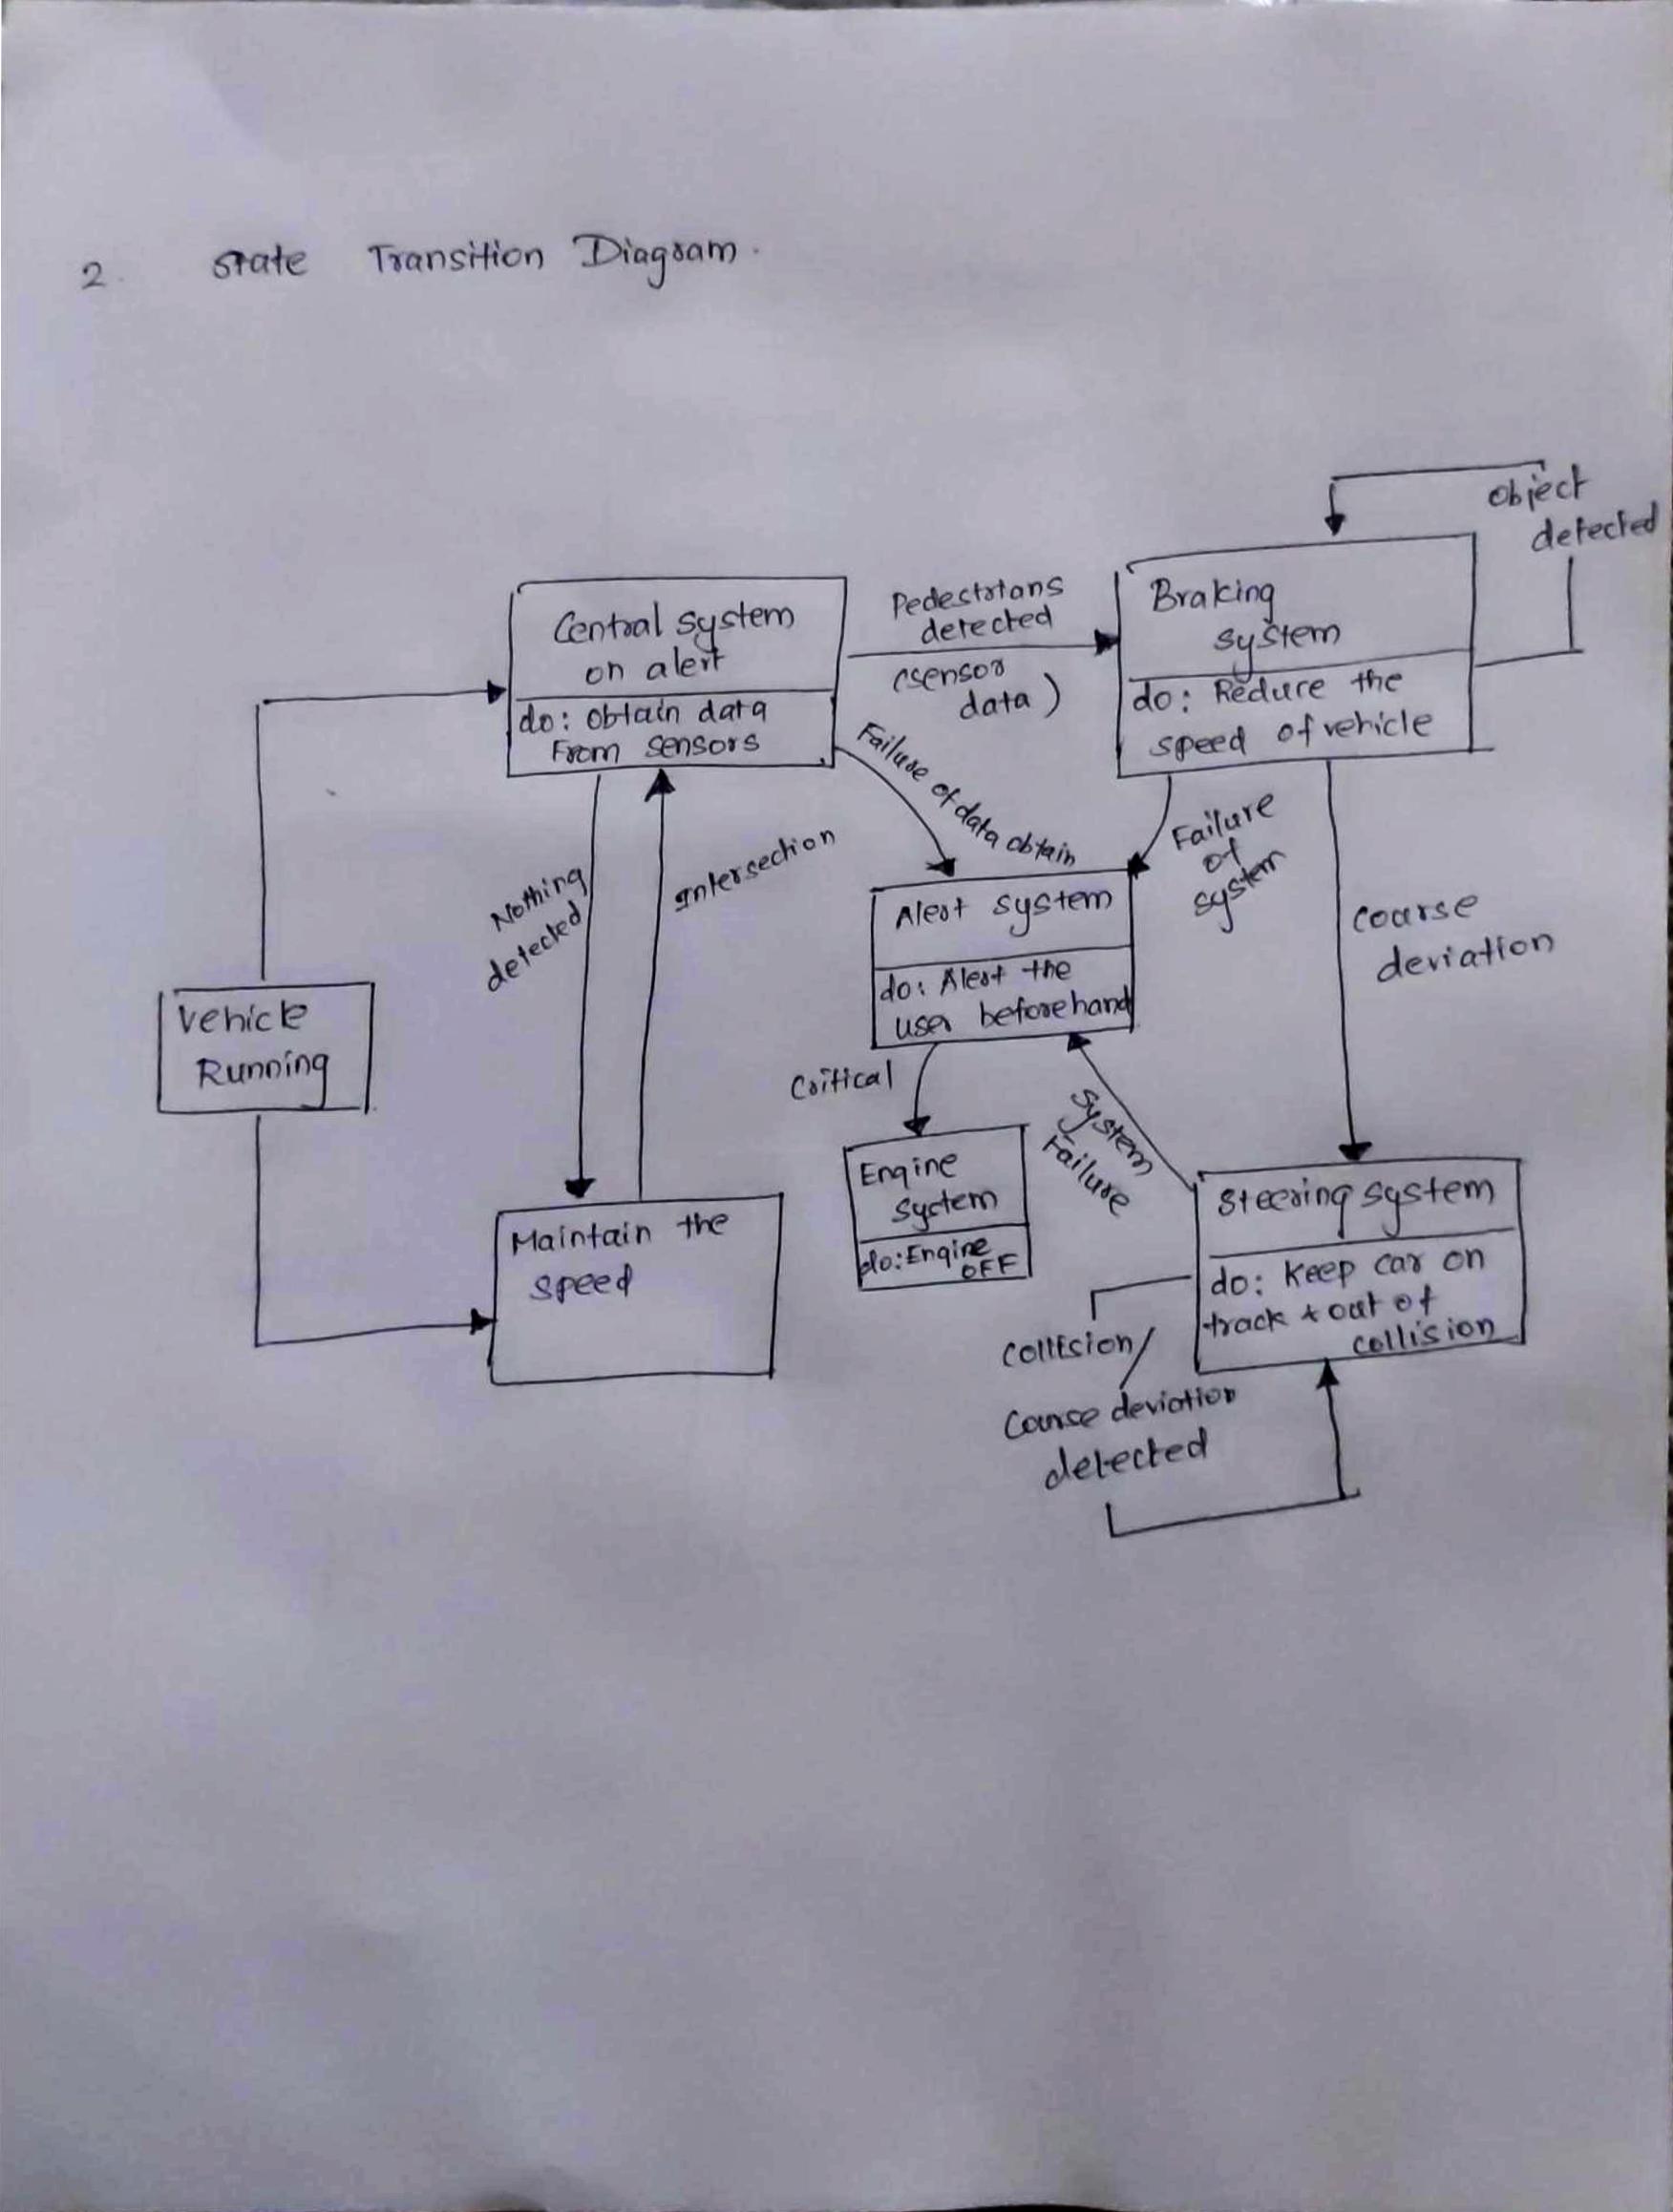 2. State Transition Diagram.
object
detected
Central system
on alert
do: obtain data
From sensors
Pedestrians
detected
(sensor
data)
Braking
system
do: Reduce the
speed of vehicle
Failure of data obtain
Failure
of
system
Nothing
detected
Intersection
Coarse
deviation
Alert system
do: Alert the
user beforehand
Vehicle
Running
Critical
System
Failure
Engine
System
do: Engine
OFF
Steering system
do: Keep car on
track & out of
collision
Maintain the
speed
Collision/
Course deviation
detected